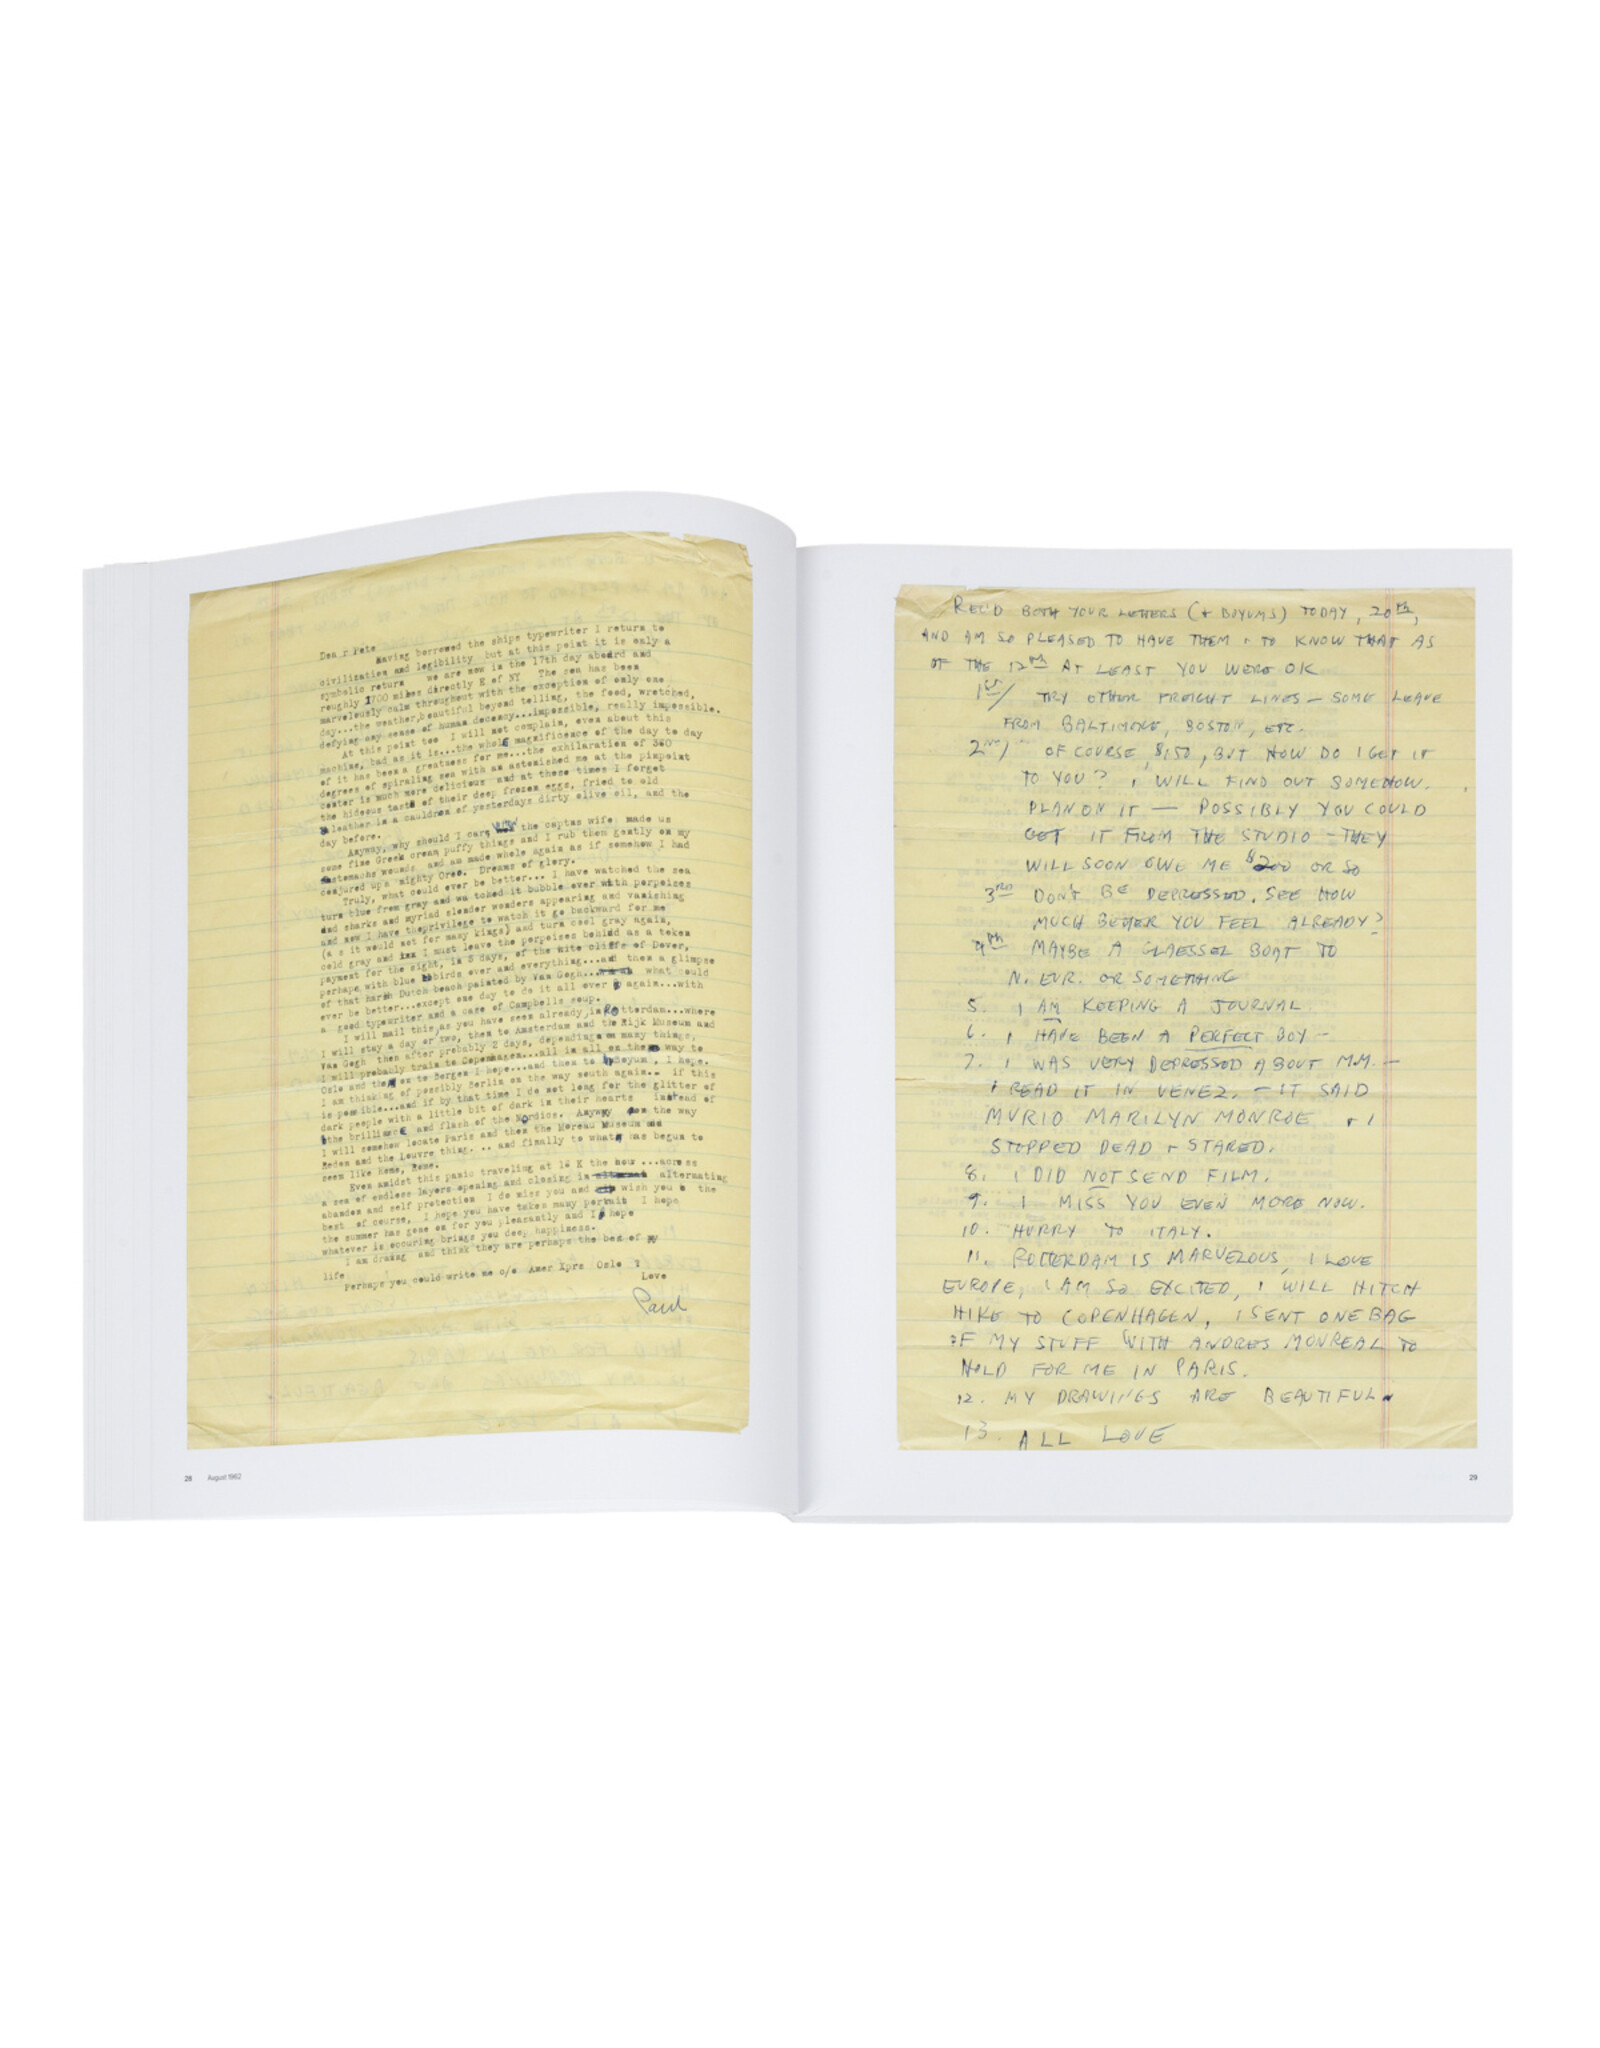 Dea r Pete
Having borrowed the ships typewriter I return to
civilization and legibility but at this point it is only a
symbolic return we are now in the 17th day aboard and
roughly 1700 miles directly E of NY The sea has been
marvelously calm throughout with the exception of only one
day...the weather,beautiful beyond telling, the food, wretched,
defying any sense of human decency...impossible, really impossible.
At this point too I will not complain, even about this
machine, bad as it is...the whole magnificence of the day to day
of it has been a greatness for me...the exhilaration of 360
degrees of spiraling sea with an astonished me at the pinpoint
center is much more delicious and at these times I forget
the hideous taste of their deep frozen eggs, fried to old
leather in a cauldron of yesterdays dirty olive oil, and the
day before.
Anyway, why should I care the captns wife made us
some fine Greek cream puffy things and I rub them gently on my
stomachs wounds and am made whole again as if somehow I had
conjured up a mighty Oreo. Dreams of glory.
Truly, what could ever be better... I have watched the sea
turn blue from gray and wa tched it bubble over with porpoises
and sharks and myriad slender wonders appearing and vanishing
and now I have theprivilege to watch it go backward for me
(a s it would not for many kings) and turn cool gray again,
cold gray and I must leave the porpoises behind as a token
payment for the sight, in 5 days, of the wite cliffs of Dover,
perhaps, with blue birds over and everything...and then a glimpse
of that harsh Dutch beach painted by Van Gogh... what could
ever be better...except one day to do it all over again...with
a good typewriter and a case of Campbells soup.
I will mail this, as you have seen already, in Rotterdam...where
I will stay a day or two, then to Amsterdam and the Rijk Museum and
Van Gogh then after probably 2 days, depending on many things,
I will probably train to Copenhagen...all in all on the way to
Oslo and then on to Bergen I hope...and then to Boyum , I hope.
I am thinking of possibly Berlin on the way south again.. if this
is possible...and if by that time I do not long for the glitter of
dark people with a little bit of dark in their hearts instead of
the brilliance and flash of the Nordics. Anyway on the way
I will somehow locate Paris and then the Moreau Museum and
Redon and the Louvre thing. .. and finally to what has begun to
seem like Home, Rome.
Even amidst this panic traveling at 16 K the hour ...across
a sea of endless layers opening and closing in alternating
abandon and self protection I do miss you and wish you the
best of course, I hope you have taken many portrait I hope
the summer has gone on for you pleasantly and I hope
whatever is occuring brings you deep happiness.
I am drawing and think they are perhaps the best of my
life
Perhaps you could write me c/o Amer Xprs Oslo ?
Love
Paul
28 August 1962
REC'D BOTH YOUR LETTERS (+ BOYUMS) TODAY, 20th,
AND AM SO PLEASED TO HAVE THEM + TO KNOW THAT AS
OF THE 12th AT LEAST YOU WERE OK
1st/ TRY OTHER FREIGHT LINES – SOME LEAVE
FROM BALTIMORE, BOSTON, ETC.
2nd/ OF COURSE $150, BUT HOW DO I GET IT
TO YOU? I WILL FIND OUT SOMEHOW.
PLAN ON IT — POSSIBLY YOU COULD
GET IT FROM THE STUDIO – THEY
WILL SOON OWE ME $200 OR SO
3RD DON'T BE DEPRESSED. SEE HOW
MUCH BETTER YOU FEEL ALREADY?
4th MAYBE A BOAT TO
N. EUR. OR SOMETHING
5. I AM KEEPING A JOURNAL.
6. I HAVE BEEN A PERFECT BOY –
7. I WAS VERY DEPRESSED ABOUT M.M. –
I READ IT IN VENEZ. – IT SAID
MURIO MARILYN MONROE + I
STOPPED DEAD + STARED.
8. I DID NOT SEND FILM.
9. I MISS YOU EVEN MORE NOW.
10. HURRY TO ITALY.
11. ROTTERDAM IS MARVELOUS, I LOVE
EUROPE, I AM SO EXCITED, I WILL HITCH
HIKE TO COPENHAGEN, I SENT ONE BAG
OF MY STUFF WITH ANDRES MONREAL TO
HOLD FOR ME IN PARIS.
12. MY DRAWINGS ARE BEAUTIFUL.
13. ALL LOVE
29